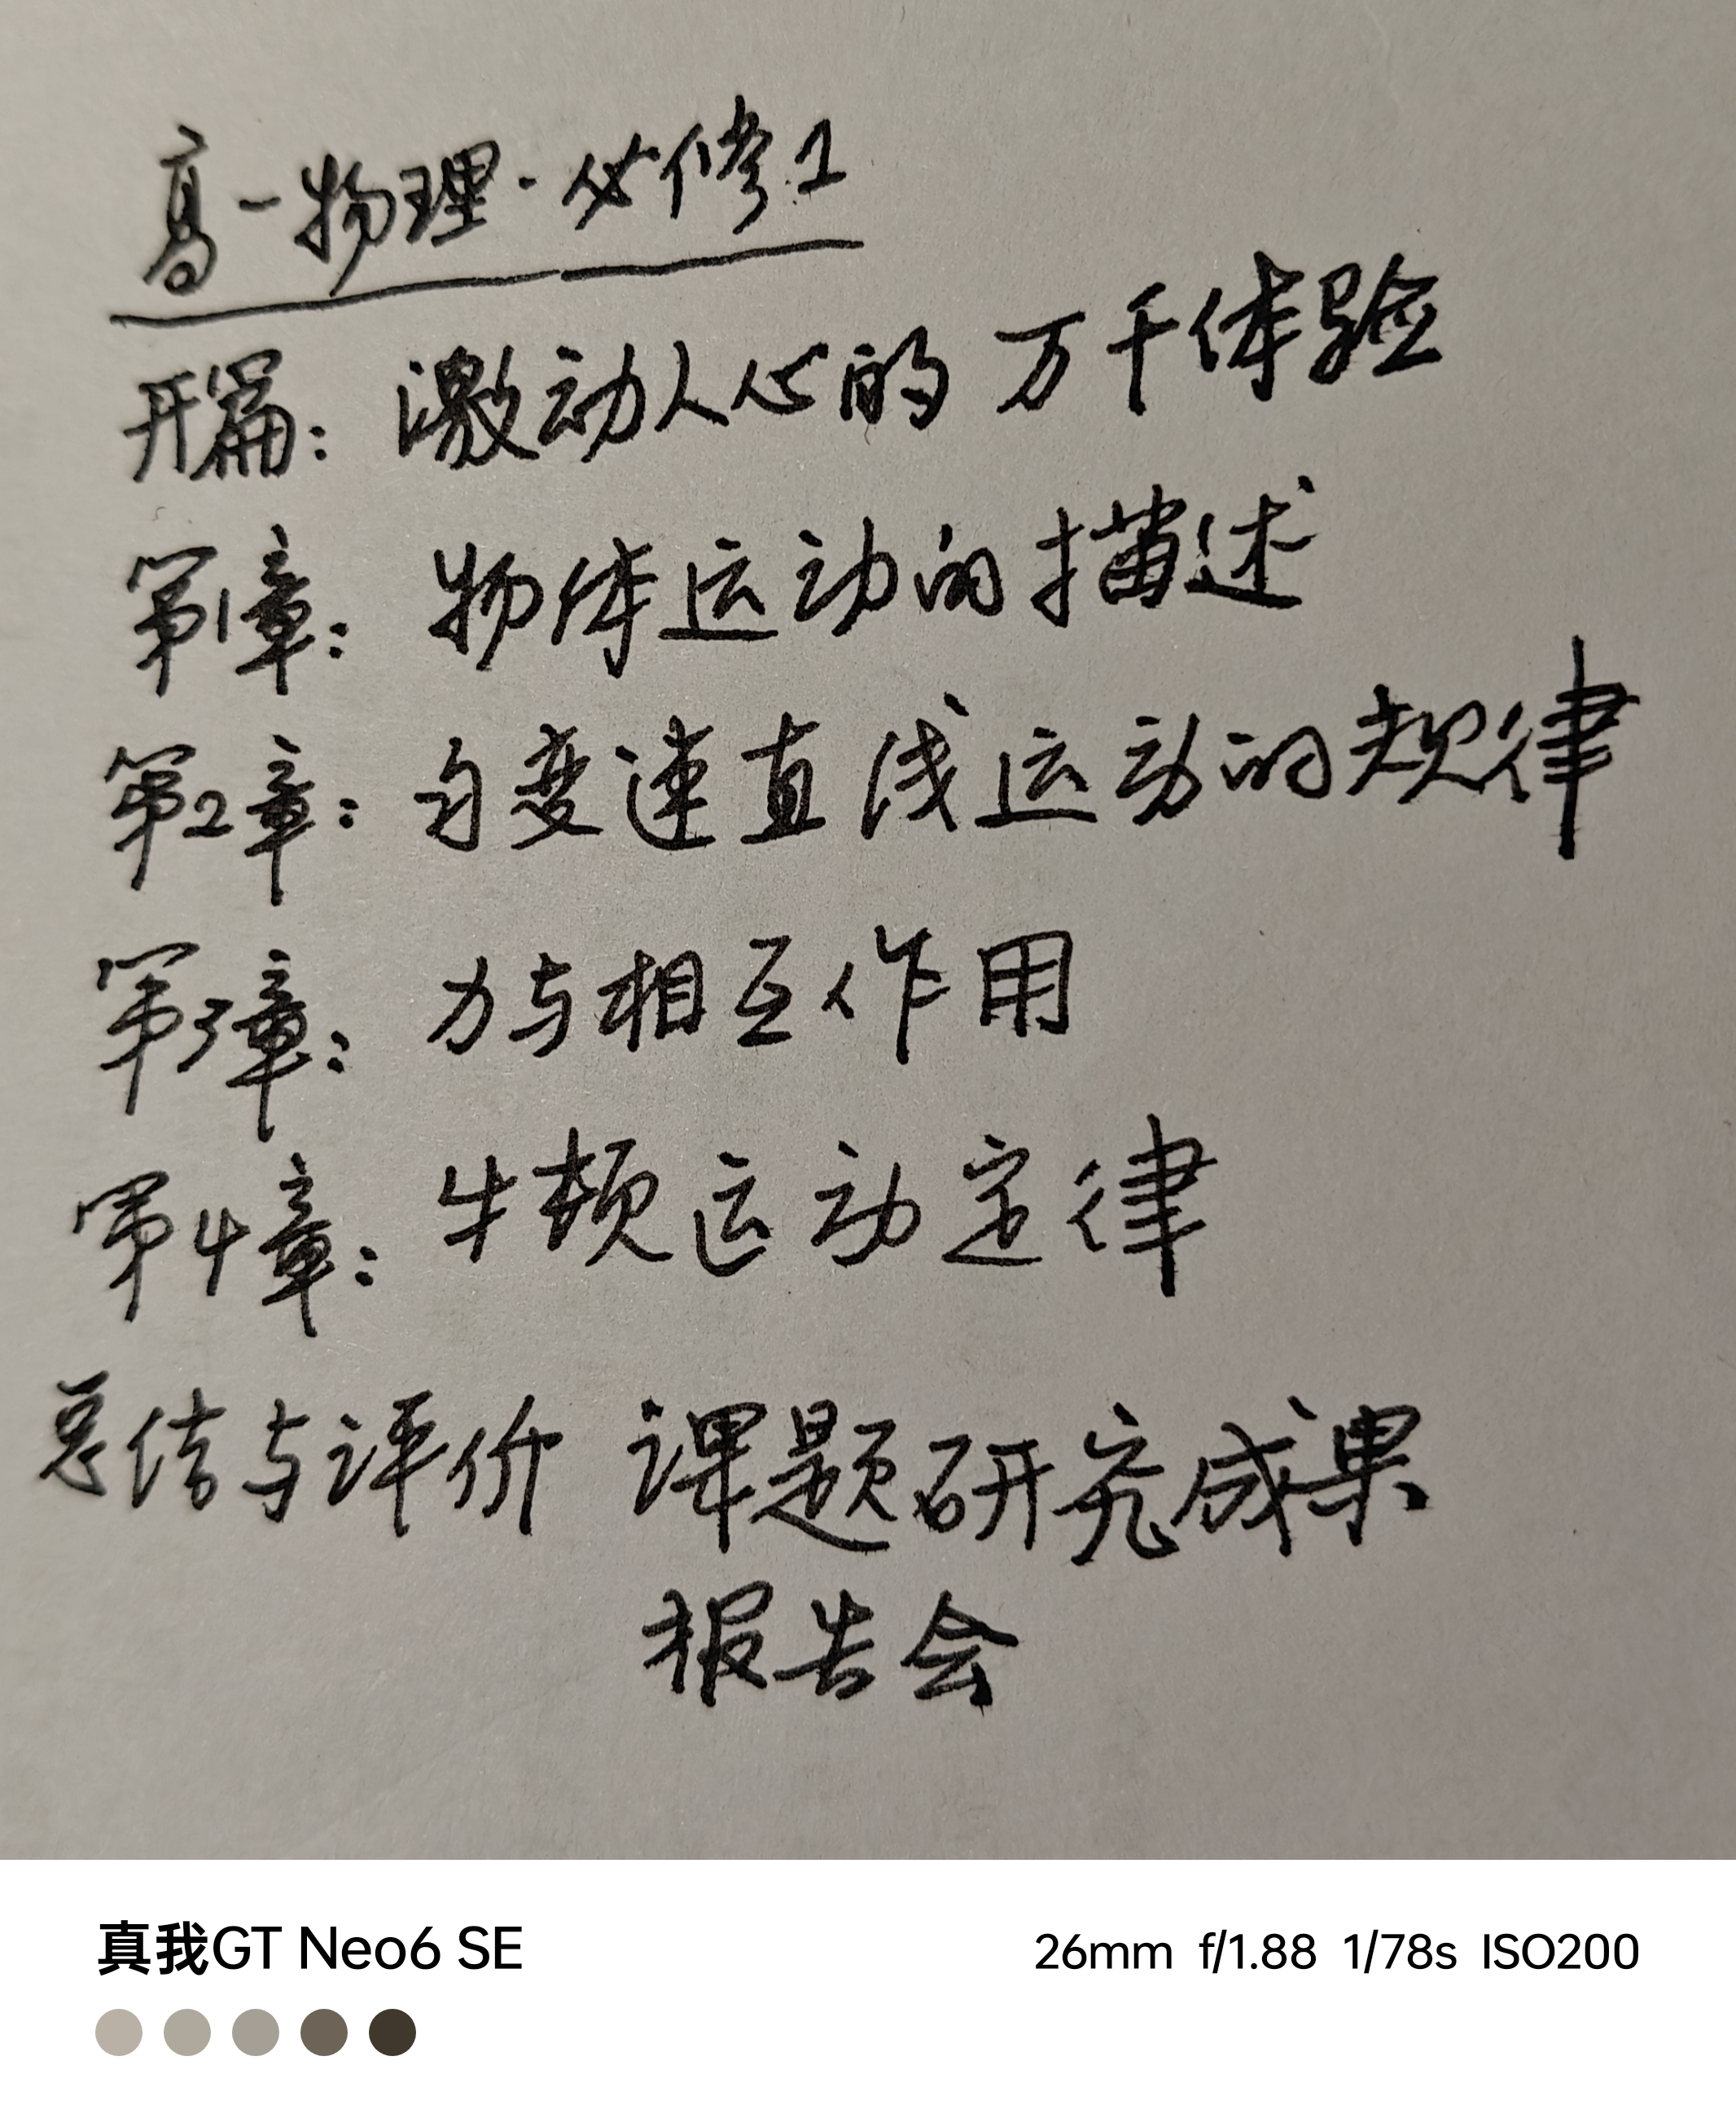 高一物理·必修1
开篇：激动人心的万千体验
第1章：物体运动的描述
第2章：匀变速直线运动的规律
第3章：力与相互作用
第4章：牛顿运动定律
总结与评价 课题研究成果
报告会
真我GT Neo6 SE
26mm f/1.88 1/78s ISO200